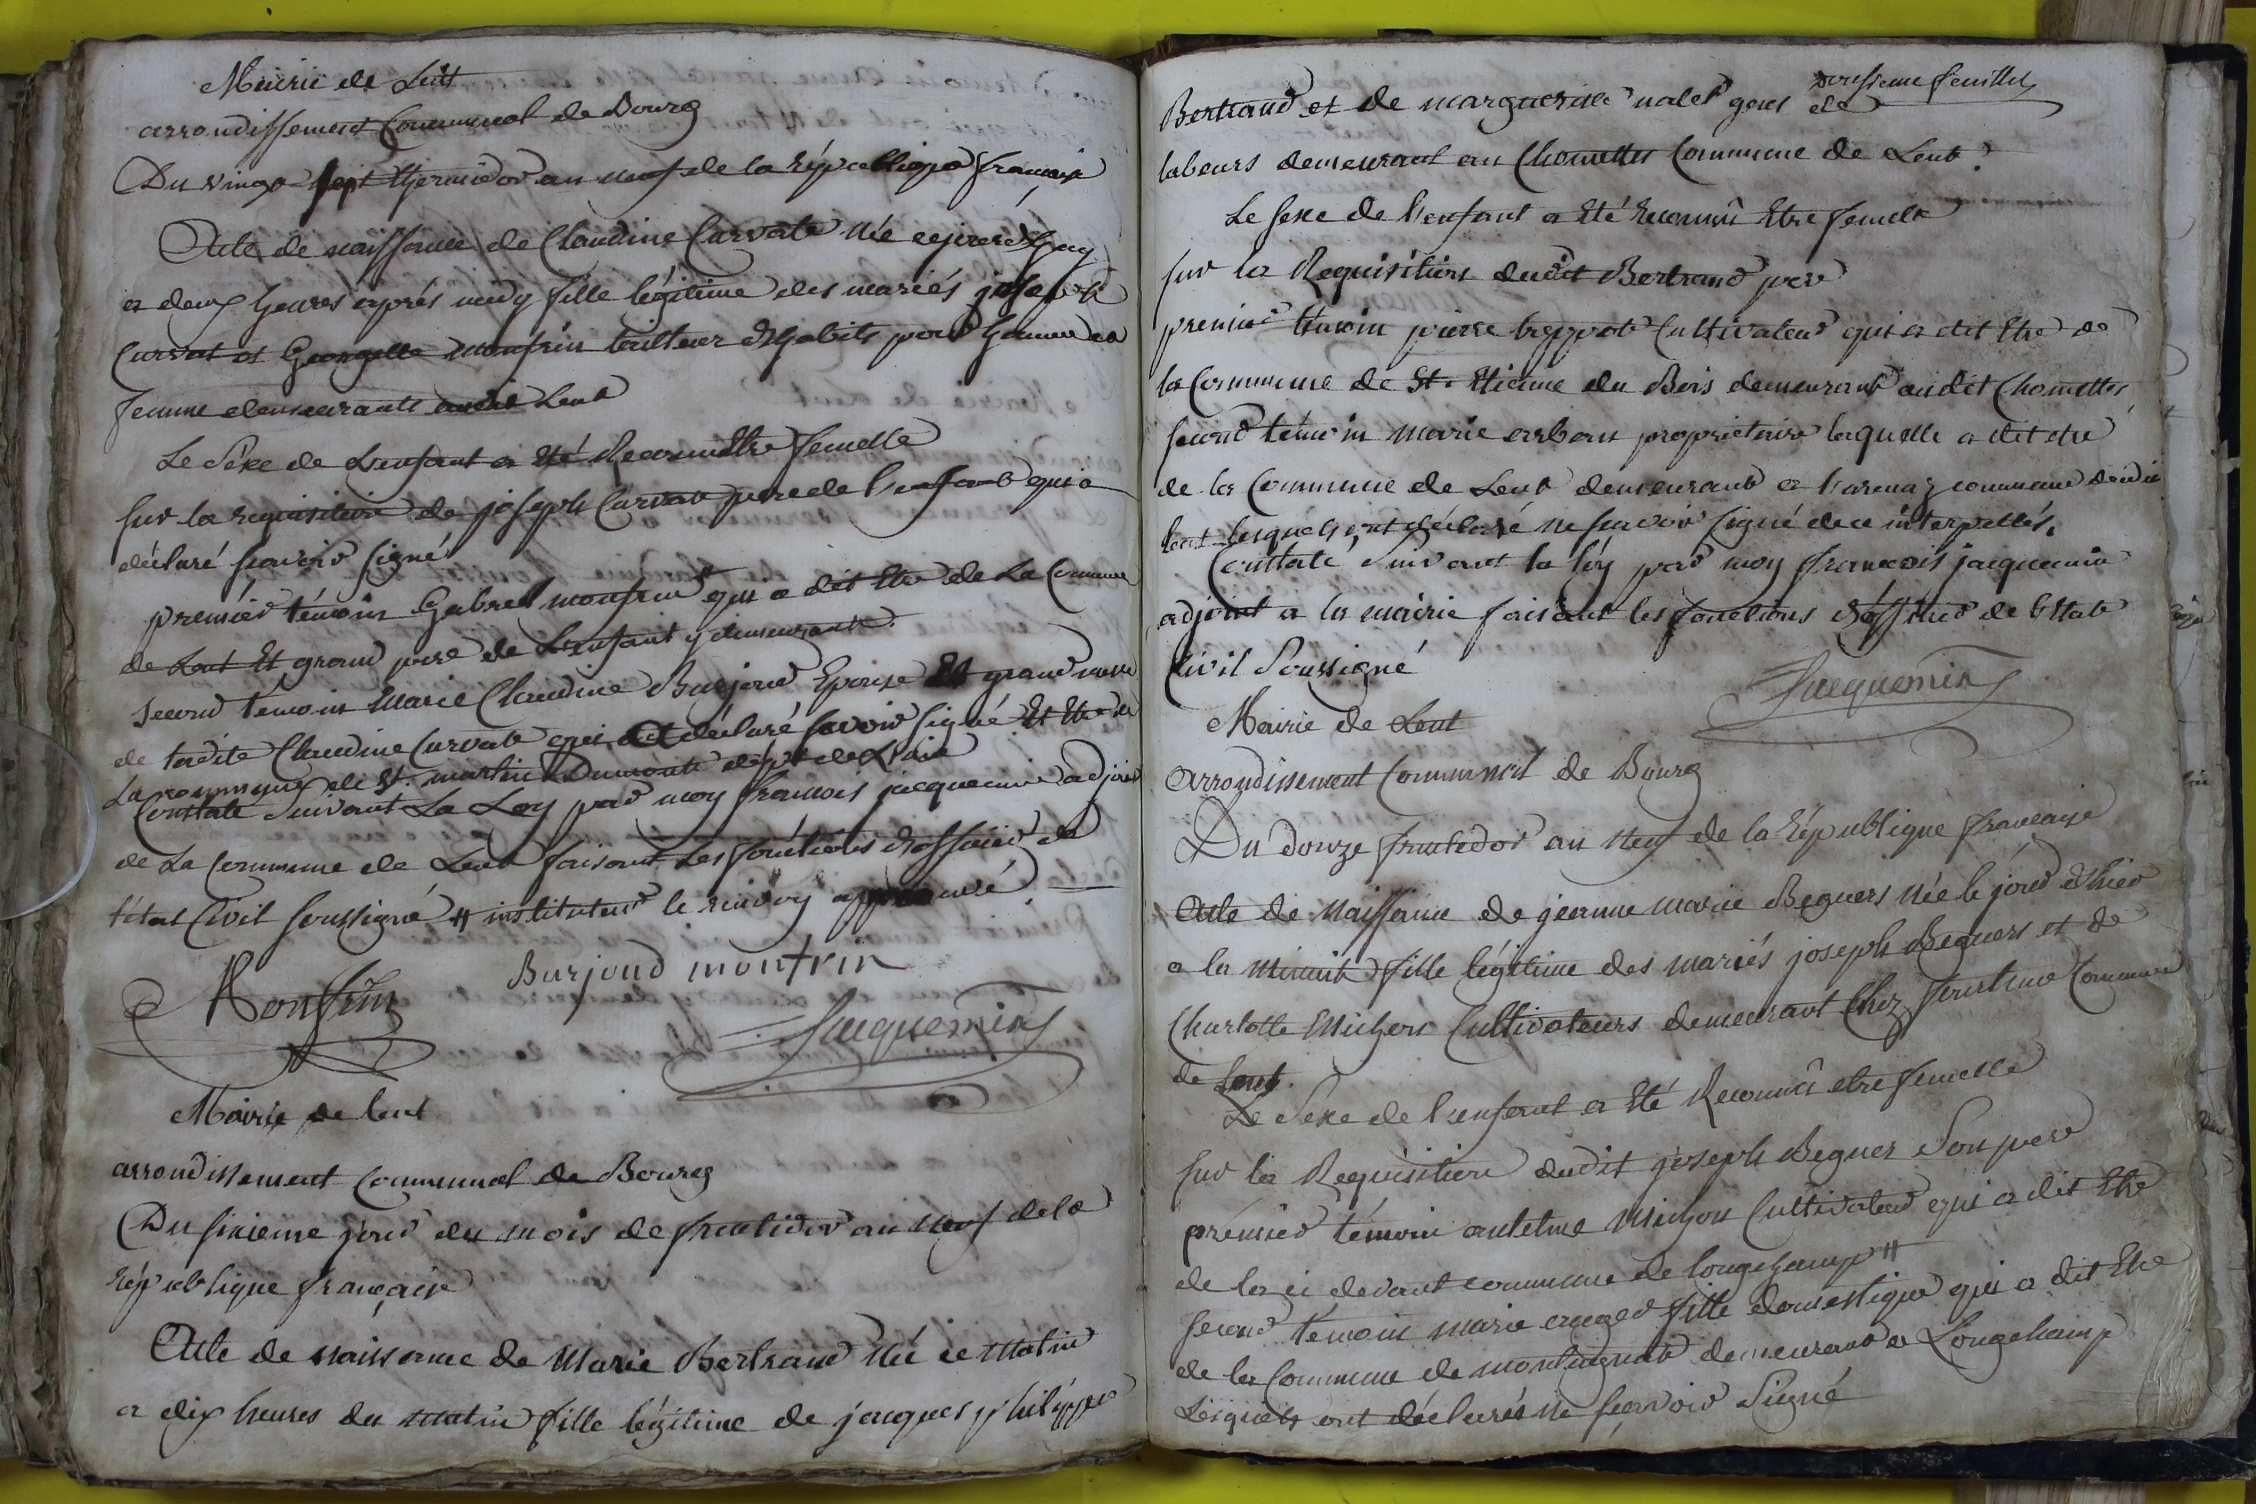 Mairie de Lent
arrondissement Communal de Bourg
Du vingt sept thermidor an neuf de la république française
Acte de naissance de Claudine Curvat née cejourdhuy
a deux heures après midy fille légitime des mariés joseph
Curvat et Georgette Monfrin tailleur d'habits pour homme et
femme demeurants audit Lent
Le Sexe de L'enfant a été Reconnu Etre femelle
sur la requisition de joseph Curvat pere de l'enfant qui a
déclaré scavoir signé
premier témoin Gabriel monfrin # qui a dit Etre de La Commune
de Lent Et grand pere de L'enfant y demeurant
second témoin Marie Claudine Burjoud Epouse Et grand mere
de ladite Claudine Curvat qui a déclaré savoir signé Et Etre de
La commune de St. martin Dumont dépt de L'ain
Constaté Suivant La Loy par moy francois jacquemin adjoint
de La Commune de Lent faisant Les fonctions d'officier de
l'état Civil soussigné # instituteur le renvoy approuvé
Monfrin
Burjoud monfrin
Jacquemin
Mairie de lent
arrondissement Communal de Bourg
Du sixieme jour du mois de fructidor an neuf de la
république française
Acte de naissance de Marie Bertrand née ce matin
a dix heures du matin fille légitime de jacques philippe
douzieme feuillet
Bertrand et de marguerite nalet gens de
labeurs demeurant au Chomettes Commune de Lent
Le sexe de l'enfant a été reconnû Etre femelle
sur la Requisitions dudit Bertrand pere
premier témoin pierre Cultivateur qui a dit Etre de
la Commune de St. Etienne du Bois demeurant audit Chomettes
second témoin Marie arban proprietaire laquelle a dit etre
de la Commune de Lent demeurant a commune dudit
lent lesquels ont déclaré ne scavoir signé de ce interpellés
Constaté Suivant la loy par moy francois jacquemin
adjoint a la mairie faisant les fonctions d'officier de l'Etat
Civil Soussigné
Jacquemin
Mairie de Lent
arrondissement Communal de Bourg
Du douze fructidor an neuf de la République française
Acte de Naissance de jeanne marie Beguers née le jour d'hier
a la minuit fille légitime des mariés joseph Beguers et de
Charlotte Michon Cultivateurs demeurant Chez Commune
de Lent.
Le Sexe de l'enfant a Eté Reconnû etre femelle
sur la Requisition dudit joseph Beguer Son pere
prémier témoin antelme Michon Cultivateur qui a dit Etre
de la ci devant commune de longchamp #
second témoin marie fille domestique qui a dit Etre
de la Commune de montagnat demeurant a Longchamp
Lesquels ont déclarés ne scavoir Signé